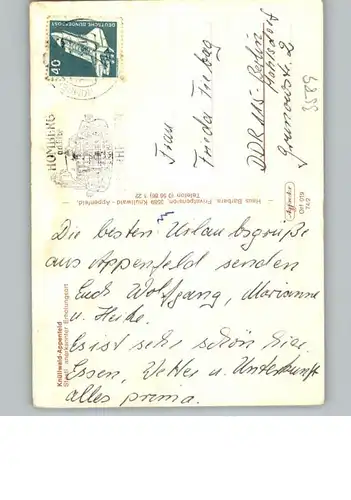 DEUTSCHE BUNDESPOST
40
HOMBERG
Frau
Frieda Freitag
DDR 1115-Berlin
Grunowstr. 2
Haus Barbara · Privatpension · 3589 Knüllwald - Appenfeld
Knüllwald-Appenfeld
Staatl. anerkannter Erholungsort
Die besten Urlaubsgrüße
aus Appenfeld senden
Euch Wolfgang, Marianne
u. Heike.
Es ist sehr schön hier
Essen, Wetter u. Unterkunft
alles prima.